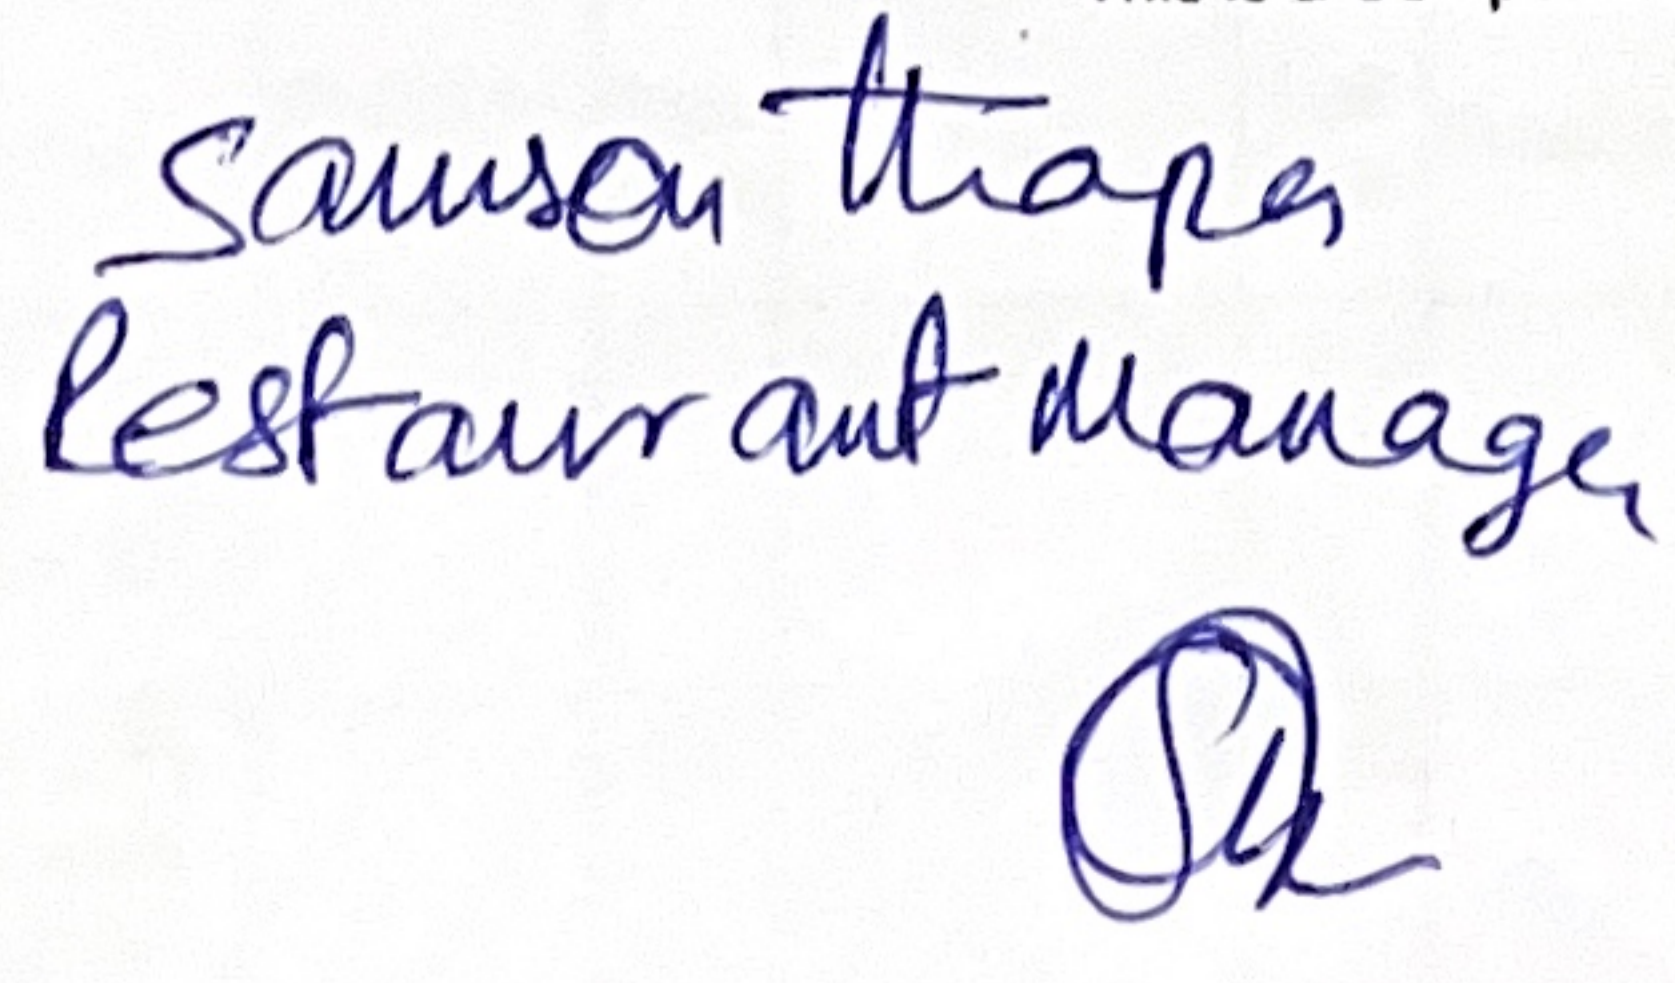 Samson Thapa
Restaurant Manager